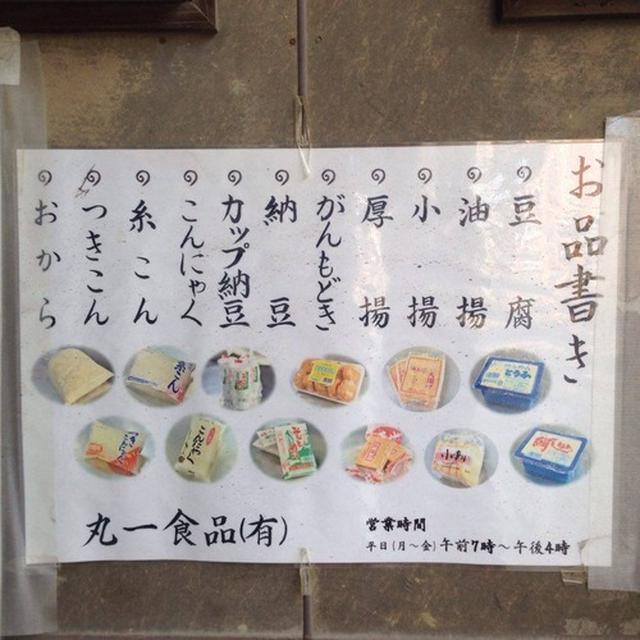 お品書き
豆腐
油揚
小揚
厚揚
がんもどき
納豆
カップ納豆
こんにゃく
糸こん
つきこん
おから
とうふ
糸こん
小揚
こんにゃく
丸一食品(有)
営業時間
平日(月〜金)午前7時〜午後4時